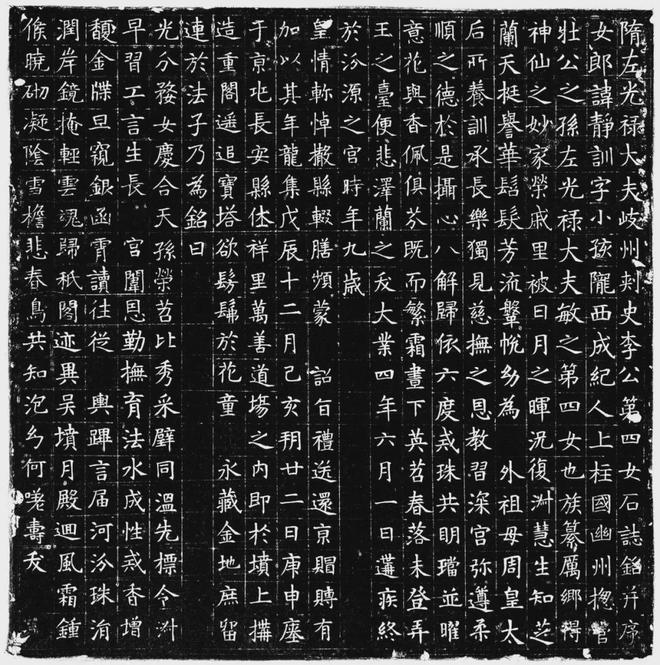 隋左光祿大夫岐州刺史李公第四女石誌銘并序
女郎諱靜訓字小孩隴西成紀人上柱國幽州揔管
壯公之孫左光祿大夫敏之第四女也族纂厲鄉得
神仙之妙家榮戚里被日月之暉況復淋慧生知芝
蘭天挺譽華髫髮芳流鞶帨幼為 外祖母周皇太
后所養訓承長樂獨見慈撫之恩教習深宮弥遵柔
順之德於是攝心八解歸依六度戒珠共明璫並曜
意花與香佩俱芬既而繁霜晝下英苕春落未登弄
玉之臺便悲澤蘭之夭大業四年六月一日遘疾終
於汾源之宮時年九歲
皇情軫悼撤縣輟膳頻蒙 詔旨禮送還京賵賻有
加以其年龍集戊辰十二月己亥朔廿二日庚申瘞
于京兆長安縣休祥里萬善道場之內即於墳上構
造重閣遙追寶塔欲髣髴於花童 永藏金地庶留
連於法子乃為銘曰
光分婺女慶合天孫榮苕比秀采璧同溫先標令淋
早習工言生長 宮闈恩勤撫育法水成性戒香增
馥金牒旦窺銀函霄讀往從 輿蹕言屆河汾珠涓
潤岸鏡掩輕雲魂歸秖閣迹異吳墳月殿迴風霜鍾
候曉砌凝陰雪檐悲春鳥共知泡幻何嗟壽夭